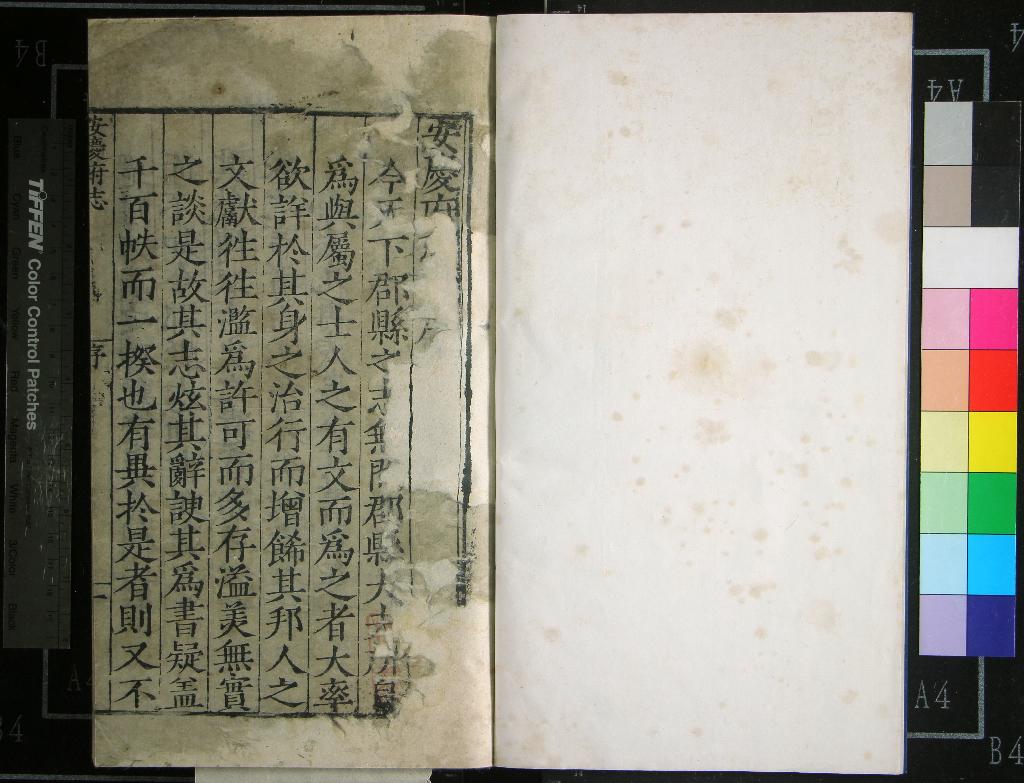 安慶府
今天下郡縣之志無 郡縣大夫
為與屬之士人之有文而為之者大率
欲詳於其身之治行而增餙其邦人之
文獻徃徃濫為許可而多存溢美無實
之談是故其志炫其辭諛其為書疑盖
千百帙而一揆也有異於是者則又不
安慶府志 序 一
TIFFEN Color Control Patches
B4
A4
A4
B4